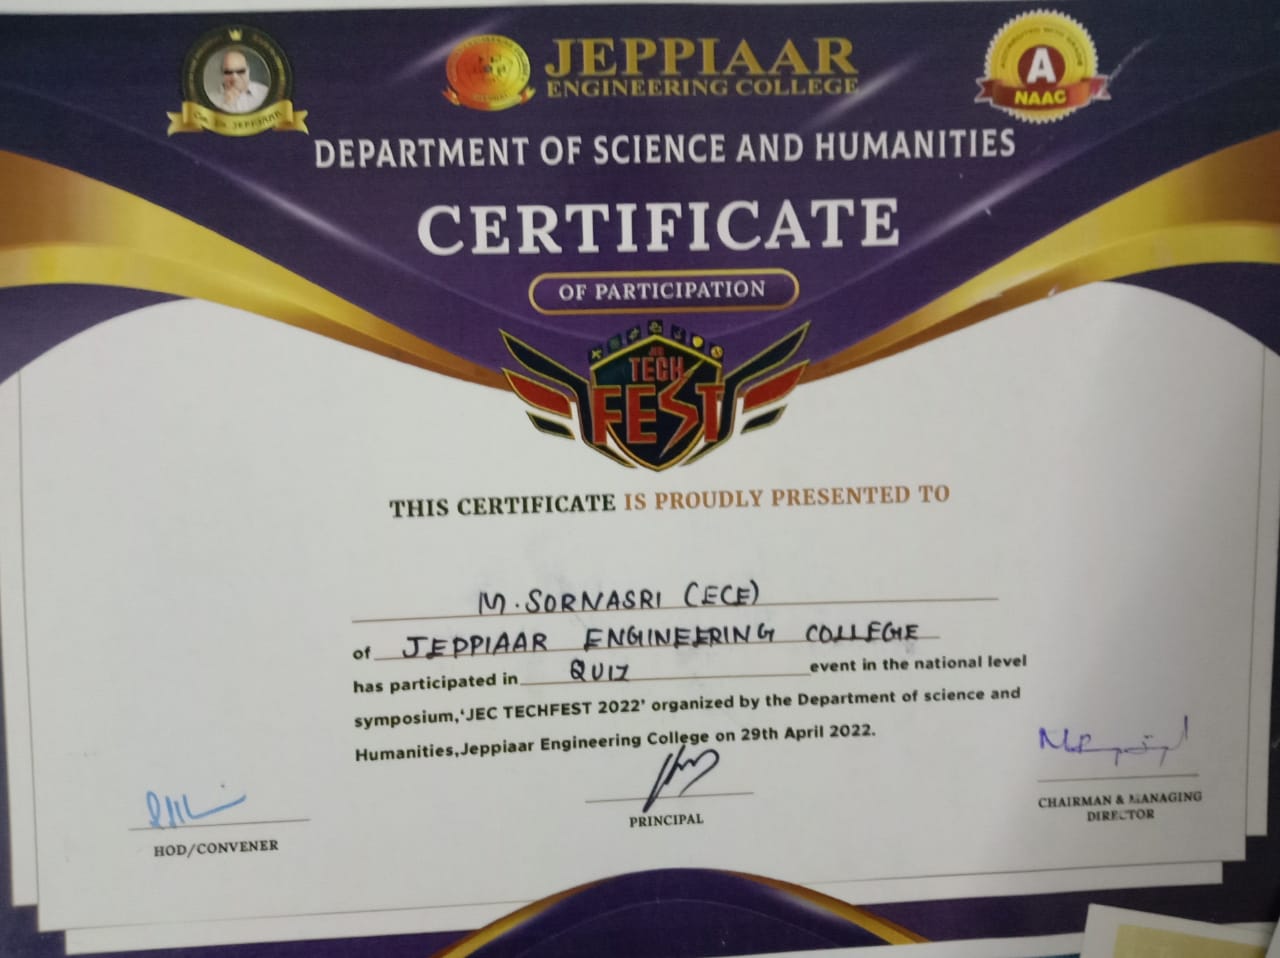 JEPPIAAR
ENGINEERING COLLEGE
A
NAAC
DEPARTMENT OF SCIENCE AND HUMANITIES
CERTIFICATE
OF PARTICIPATION
JEC
TECH
FEST
THIS CERTIFICATE IS PROUDLY PRESENTED TO
M. SORNASRI (ECE)
of JEPPIAAR ENGINEERING COLLEGE
has participated in QUIZ event in the national level
symposium,'JEC TECHFEST 2022' organized by the Department of science and
Humanities,Jeppiaar Engineering College on 29th April 2022.
HOD/CONVENER
PRINCIPAL
CHAIRMAN & MANAGING
DIRECTOR